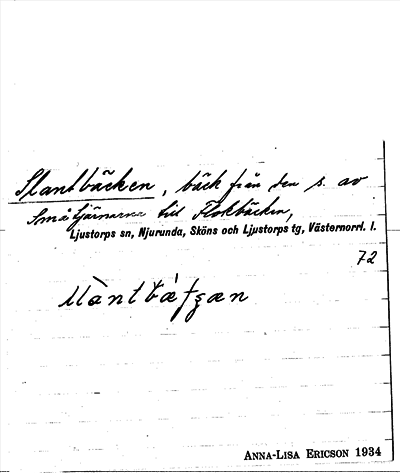 Slantbäcken, bäck från den s. av
Småtjärnarna till Flokbäcken,
Ljustorps sn, Njurunda, Sköns och Ljustorps tg, Västernorrl. l.
72
ANNA-LISA ERICSON 1934